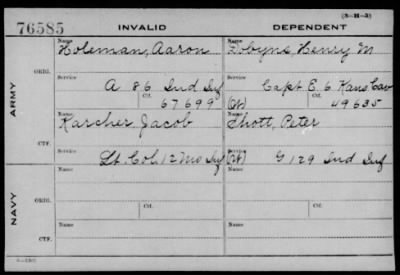 (3-H-3)
76585
INVALID DEPENDENT
Name Name
Holeman, Aaron Dobyns, Henry M
ORIG.
Service Ctf. Service Ctf.
A 86 Ind Inf Capt E. 6 Kans Cav
67699 (Wt) 49635
ARMY
Name Name
Karcher, Jacob Shott, Peter
CTF.
Service Service
Lt. Col. 12 Mo Inf (Wt) G 129 Ind Inf
Name Name
ORIG.
Service Ctf. Service Ctf.
NAVY
Name Name
CTF.
Service Service